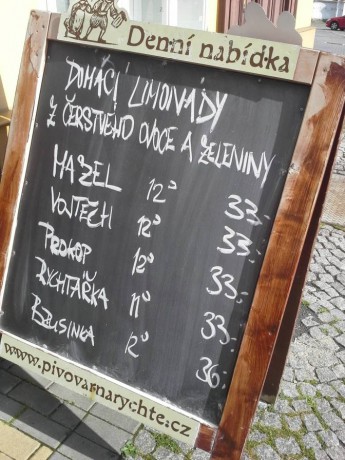 Denní nabídka
DOMÁCÍ LIMONÁDY
Z ČERSTVÉHO OVOCE A ZELENINY
MAZEL 12° 33.-
VOJTĚCH 12° 33.-
PROKOP 12° 33.-
RYCHTÁŘKA 11° 33.-
BZUSINKA 12° 36.-
www.pivovarnarychte.cz